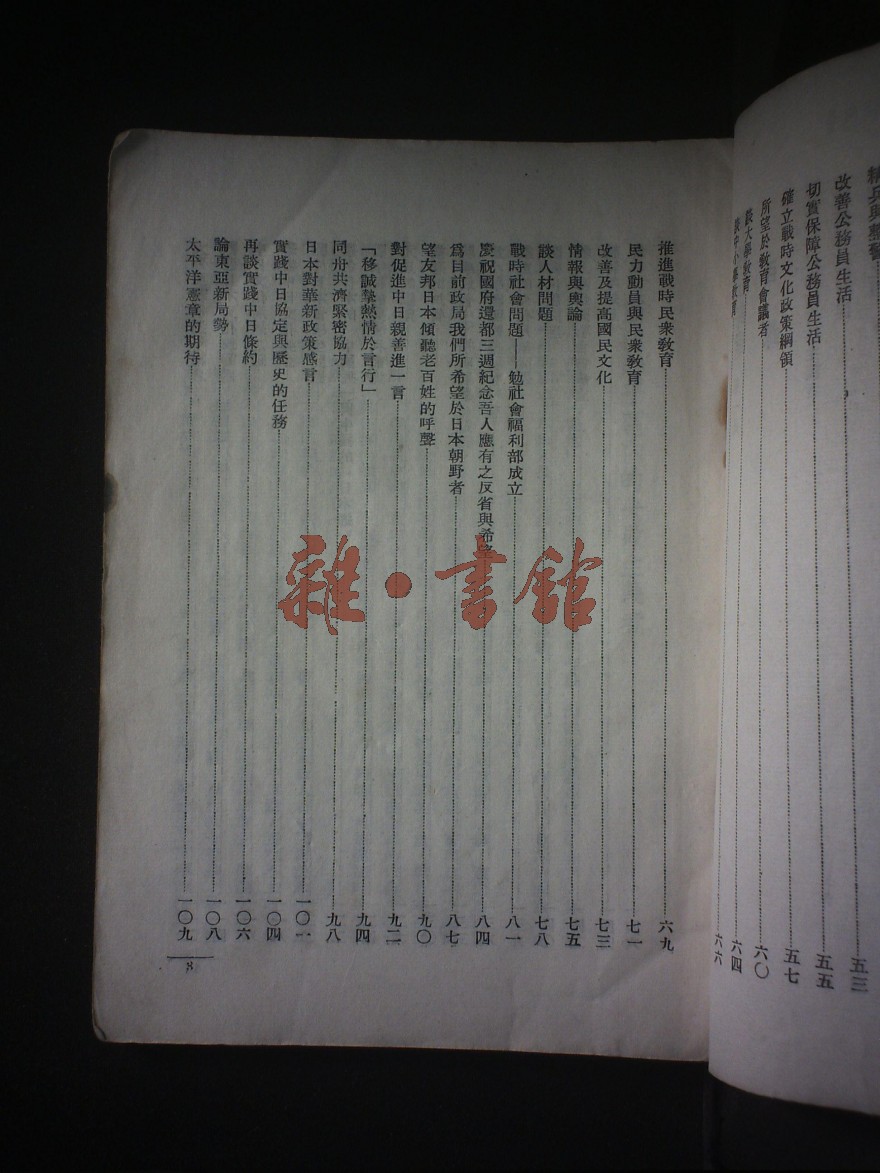 改善公務員生活……五三
切實保障公務員生活……五五
確立戰時文化政策綱領……五七
所望於教育會議者……六〇
談大學教育……六四
談中小學教育……六六
推進戰時民衆教育……六九
民力動員與民衆教育……七一
改善及提高國民文化……七三
情報與輿論……七五
談人材問題……七八
戰時社會問題——勉社會福利部成立……八一
慶祝國府還都三週紀念吾人應有之反省與希望……八四
爲目前政局我們所希望於日本朝野者……八七
望友邦日本傾聽老百姓的呼聲……九〇
對促進中日親善進一言……九二
「移誠摯熱情於言行」……九四
同舟共濟緊密協力……九八
日本對華新政策感言……一〇一
實踐中日協定與歷史的任務……一〇四
再談實踐中日條約……一〇六
論東亞新局勢……一〇八
太平洋憲章的期待……一〇九
8
雜·書館